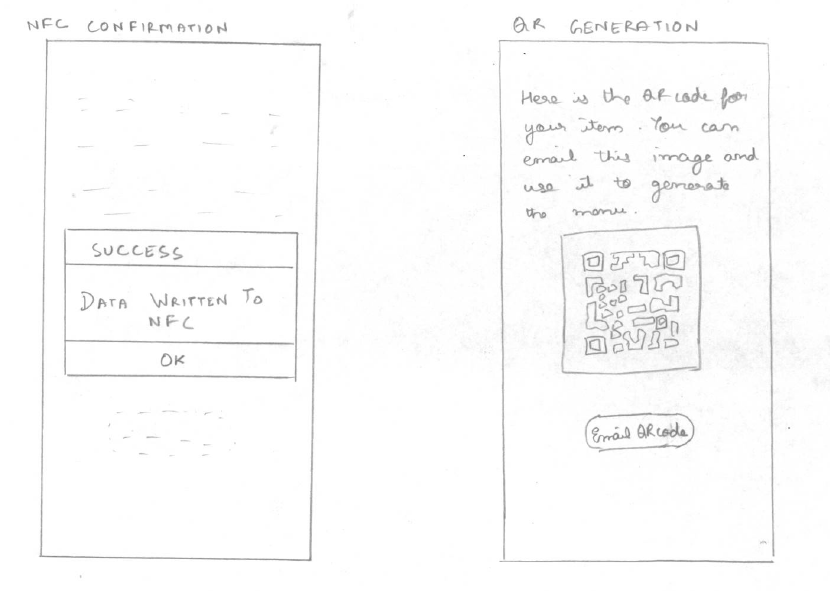 NFC CONFIRMATION
SUCCESS
DATA WRITTEN TO
NFC
OK
QR GENERATION
Here is the QR code for
your item. You can
email this image and
use it to generate
the menu.
Email QR code